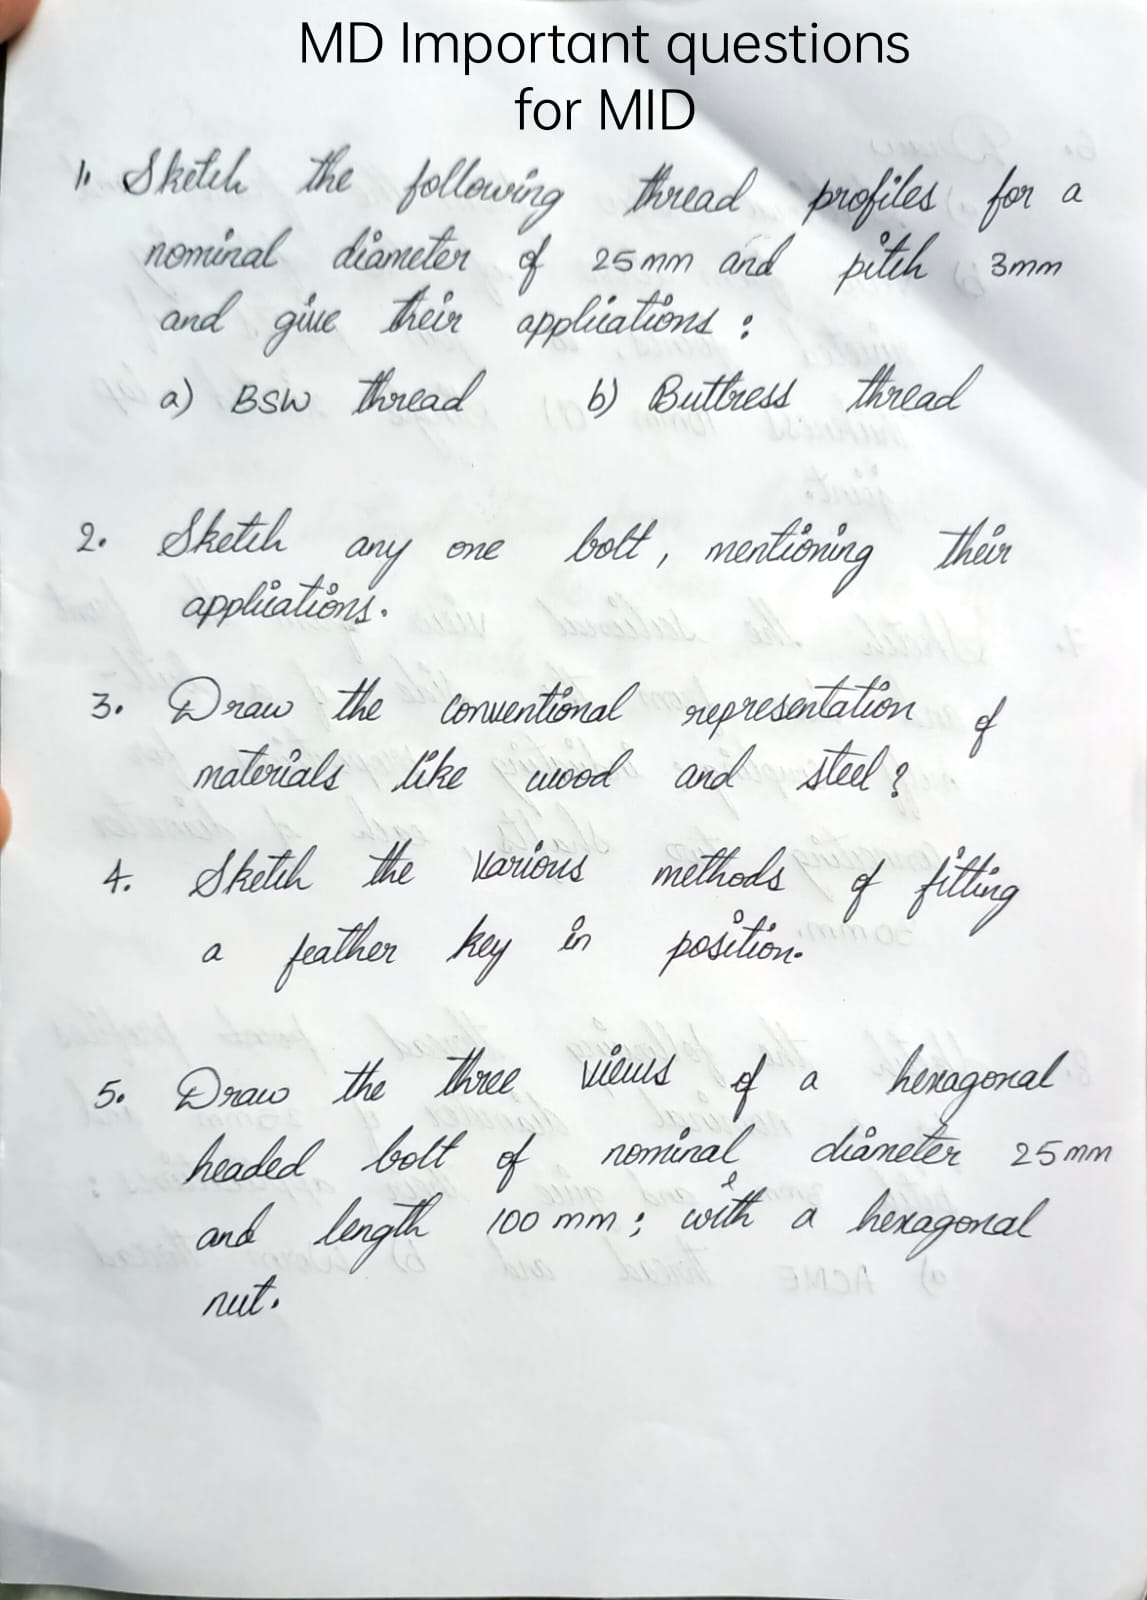 MD Important questions
for MID
1. Sketch the following thread profiles for a
nominal diameter of 25mm and pitch 3mm
and give their applications :
a) BSW thread b) Buttress thread
2. Sketch any one bolt, mentioning their
applications.
3. Draw the conventional representation of
materials like wood and steel?
4. Sketch the various methods of fitting
a feather key in position.
5. Draw the three views of a hexagonal
headed bolt of nominal diameter 25mm
and length 100 mm ; with a hexagonal
nut.